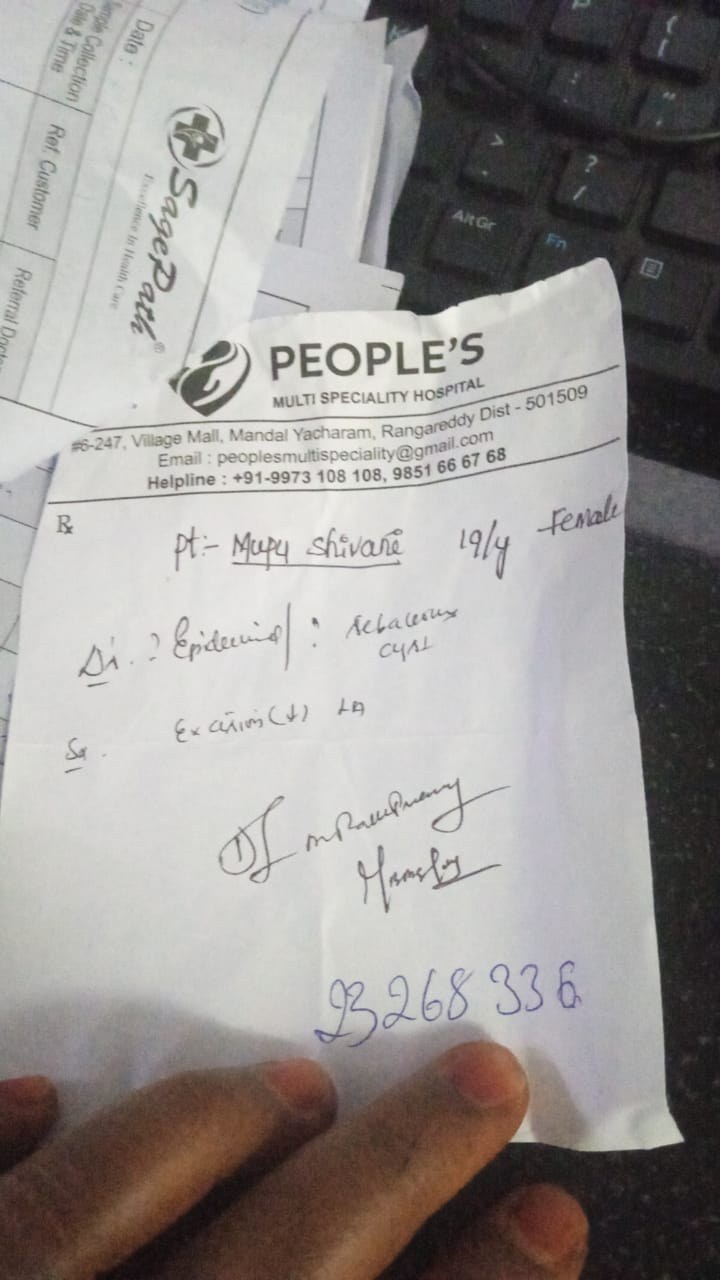 Date :
Sample Collection
Date & Time
Ref. Customer
Referral
SagePath®
Excellence In Health Care
PEOPLE'S
MULTI SPECIALITY HOSPITAL
#6-247, Village Mall, Mandal Yacharam, Rangareddy Dist - 501509
Email : peoplesmultispeciality@gmail.com
Helpline : +91-9973 108 108, 9851 66 67 68
℞
pt:- Mupu Shivani 19/y Female
Di. ? Epidermal / ? Sebaceous
cyst
Excision LA
23268336
AltGr
Fn
>
.
?
/